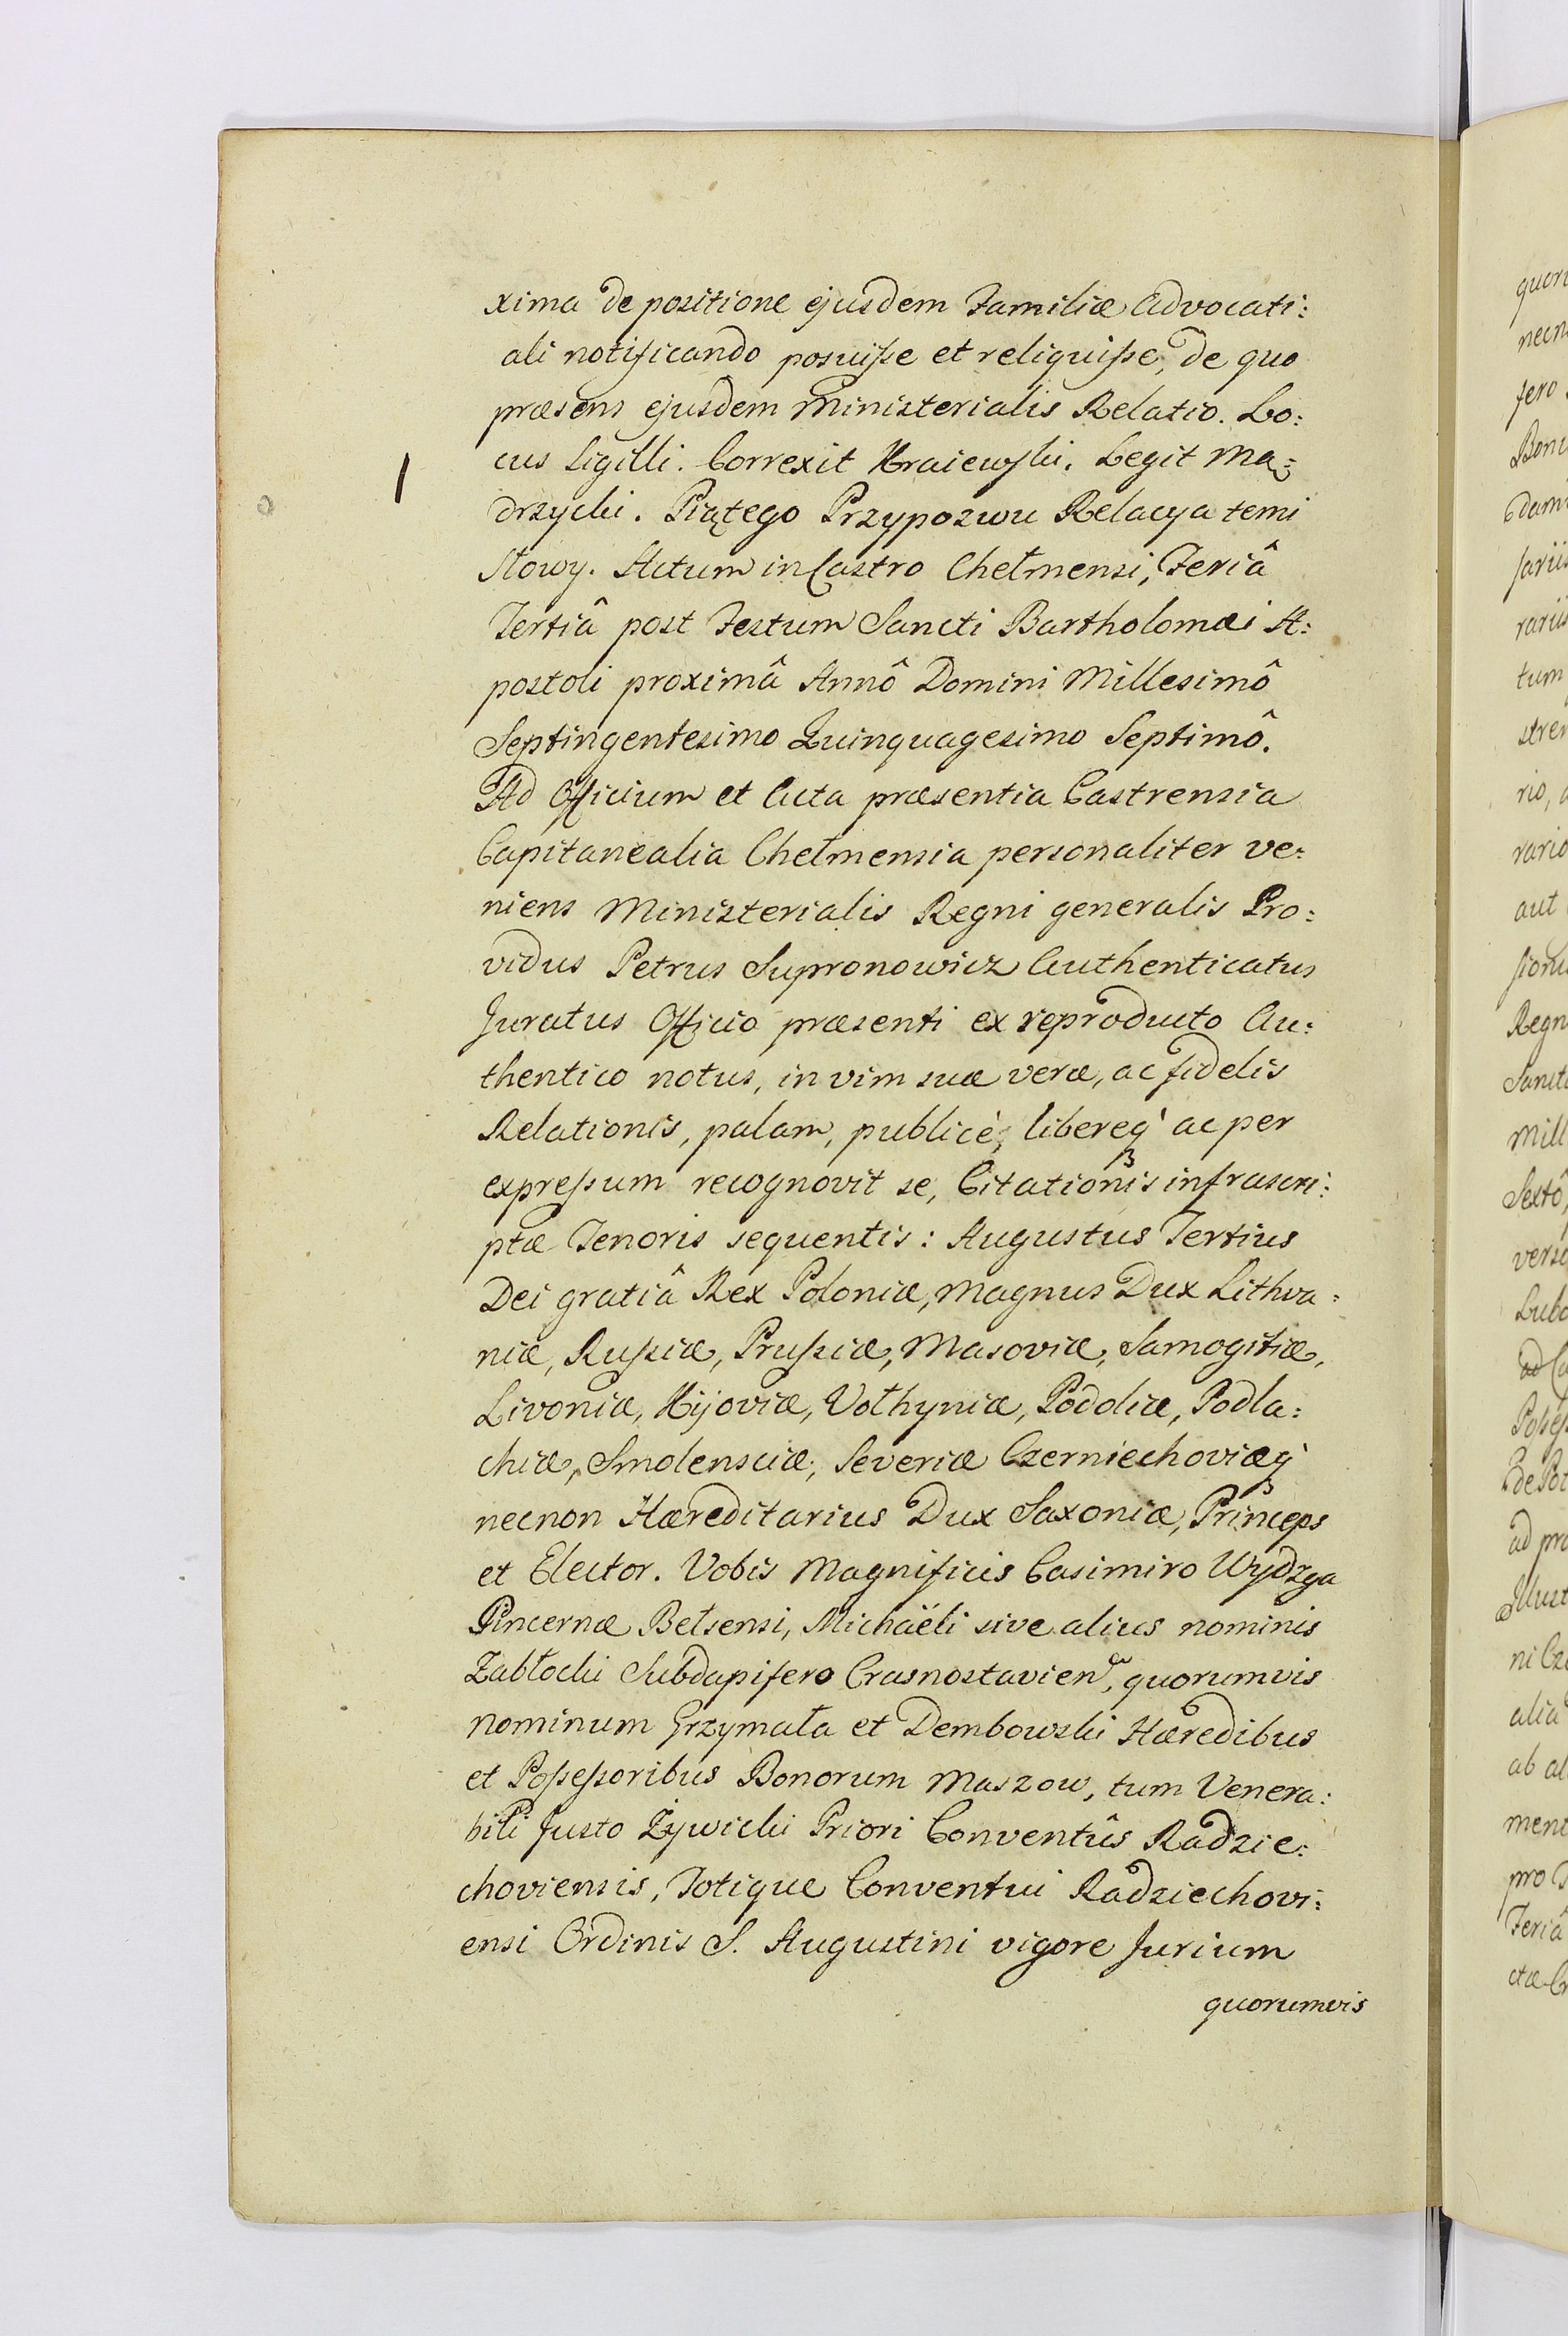 xima de positione ejusdem Familiæ Advocati:
ali notificando posuiſse et reliquiſse, de quo
præsens ejusdem Ministerialis Relatio. Lo:
cus Sigilli. Correxit Kraiewski. Legit Mą:
drzycki. Piątego Przypozwu Relacya temi
słowy. Actum in Castro Chełmensi, Feriâ
Tertiâ post Festum Sancti Bartholomæi A:
postoli proximâ Annô Domini Millesimô
Septingentesimo Quinquagesimo Septimô.
Ad Officium et Acta præsentia Castrensia
Capitanealia Chełmensia personaliter ve:
niens Ministerialis Regni generalis Pro:
vidus Petrus Supronowicz Authenticatus
Juratus Officio præsenti ex reproducto Au:
thentico notus, in vim suæ veræ, ac fidelis
Relationis, palam, publicè, libereq' ac per
expreſsum recognovit se, Citationis infrascri:
ptæ Tenoris sequentis: Augustus Tertius
Dei gratiâ Rex Poloniæ, Magnus Dux Lithva:
niæ, Ruſsiæ, Pruſsiæ, Masoviæ, Samogitiæ,
Livoniæ, Kijoviæ, Vołhyniæ, Podoliæ, Podla:
chiæ, Smolensciæ, Severiæ Czerniechoviæq'
necnon Hæreditarius Dux Saxoniæ, Princeps
et Elector. Vobis Magnificis Casimiro Wydzga
Pincernæ Bełsensi, Michaëli sive alius nominis
Zabłocki Subdapifero Crasnostavien, quorumvis
nominum Grzymała et Dembowski Hæredibus
et Poſseſsoribus Bonorum Maszow, tum Venera:
bili Justo Żywicki Priori Conventûs Radzie:
choviensis, Totique Conventui Radziechovi:
ensi Ordinis S. Augustini vigore Jurium
quorumvis